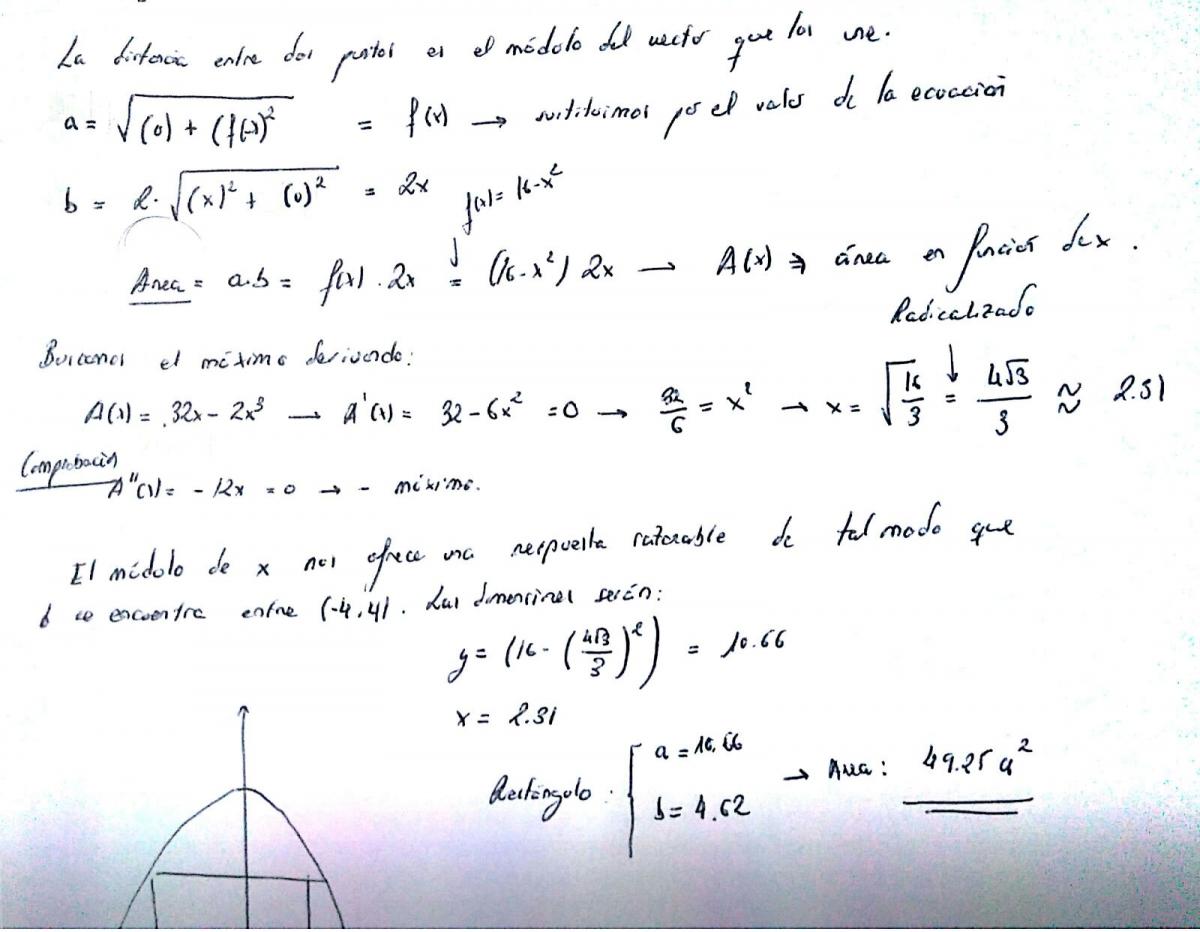 La distancia entre dos puntos es el módulo del vector que los une.
a = √((0) + (f(x))²) = f(x) → sustituimos por el valor de la ecuación
b = 2·√((x)² + (0)²) = 2x f(x) = 16-x²
Area = a.b = f(x) . 2x = (16-x²) 2x → A(x) ⇒ área en función de x.
Radicalizado
↓
Buscamos el máximo derivando:
A(x) = 32x - 2x³ → A'(x) = 32 - 6x² = 0 → 32/6 = x² → x = √(16/3) = 4√3/3 ≈ 2.31
Comprobación
A''(x) = -12x = 0 → - máximo.
El módulo de x nos ofrece una respuesta razonable de tal modo que
se encuentra entre (-4,4). Las dimensiones serán:
y = (16 - (4√3/3)²) = 10.66
x = 2.31
Rectángulo: { a = 10,66
b = 4.62
→ Area: 49.25 u²